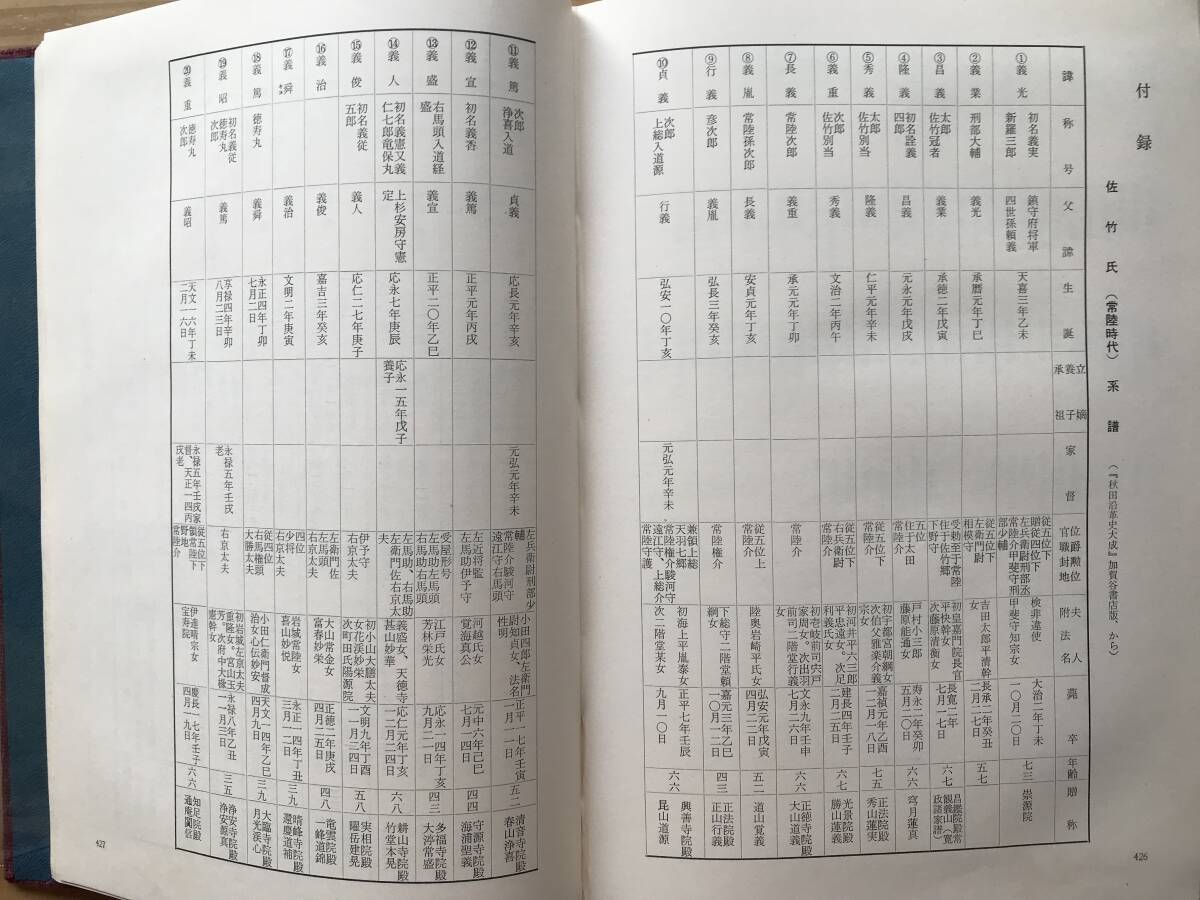 付録
佐竹氏(常陸時代)系譜
(『秋田沿革史大成』加賀谷書店版、から)
諱
称号
父諱
生誕
立嫡
養子
承祖
家督
位爵勲位
官職封地
夫人
附法名
薨卒
年齢
贈称
①義光
初名義実
新羅三郎
鎮守府将軍
四世孫頼義
天喜三年乙未
従五位下
贈従四位下
左兵衛尉刑部丞
常陸介甲斐守刑
部少輔
検非違使
甲斐守知宗女
大治二年丁未
一〇月二〇日
七三
崇源院
②義業
刑部大輔
義光
承暦元年丁巳
従五位下
左衛門尉
相模守
吉田太郎平清幹
女
長承二年癸丑
二月二七日
五七
③昌義
太郎
佐竹冠者
義業
承徳二年戊寅
受勅至于常陸
住于佐竹郷
下野守
初皇嘉門院長官
平快幹女
次藤原清衡女
長寛二年
七月一七日
六七
昌鑑院殿常
観義山(寛
政諸家譜)
④隆義
初名詮義
四郎
昌義
元永元年戊戌
五位
住于太田
常陸介
戸村小三郎
藤原能通女
寿永二年癸卯
五月二〇日
六六
穹月蓮真
⑤秀義
太郎
佐竹別当
隆義
仁平元年辛未
従五位下
常陸介
初宇都宮朝綱女
次伯父雅楽介義
宗女
嘉禎元年乙酉
一二月一八日
七五
正法院殿
秀山蓮実
⑥義重
次郎
佐竹別当
秀義
文治二年丙午
従五位下
右兵衛尉
常陸介
初河井平六三郎
平忠遠女。次足
利義氏女
建長四年壬子
二月二五日
六七
光景院殿
勝山蓮義
⑦長義
常陸次郎
義重
承元元年丁卯
初壱岐前司宍戸
家周女。次出羽
前司二階堂行義
女
文永九年壬申
七月二六日
六六
正徳寺院殿
大山道義
⑧義胤
常陸孫次郎
長義
安貞元年丁亥
従五位上
常陸介
陸奥岩崎平氏女
弘安元年戊寅
四月二二日
五二
道山覚義
⑨行義
彦次郎
義胤
弘長三年癸亥
常陸権介
下総守二階堂頼
綱女
嘉元三年乙巳
一〇月一二日
四三
正法院殿
正山行義
⑩貞義
次郎
上総入道源
行義
弘安一〇年丁亥
元弘元年辛未
兼領上総
天羽七郷
常陸権介駿河守
遠江守、上総介
常陸守護
初海上平胤泰女
次二階堂某女
正平七年壬辰
九月一〇日
六六
興善寺院殿
昆山道源
426
⑪義篤
次郎
浄喜入道
貞義
応長元年辛亥
元弘元年辛未
左兵衛尉刑部少
輔
常陸介駿河守
遠江守右馬頭
小田四郎左衛門
尉知貞女、法名
性明
正平一七年壬寅
一月一一日
五二
清音寺院殿
春山浄喜
⑫義宣
初名義香
義篤
正平元年丙戌
左近将監
左馬助伊予守
河越氏女
覚海真公
元中六年己巳
七月一四日
四四
守源寺院殿
海浦聖義
⑬義盛
右馬頭入道経
盛
義宣
正平二〇年乙巳
受屋形号
左馬助左馬頭
右馬助右馬頭
江戸氏女
芳林栄光
応永一四年丁亥
九月二一日
四三
多福寺院殿
大渟常盛
⑭義人
初名義憲又義
仁七郎竜保丸
上杉安房守憲
定
応永七年庚辰
応永一五年戊子
養子
左馬助、右馬助
左衛門佐右京大
夫
義盛女、天徳寺
甚山妙華
応仁元年丁亥
一二月二四日
六八
耕山寺院殿
竹堂本晃
⑮義俊
初名義従
五郎
義人
応仁二七年庚子
伊予守
右京大夫
初小山大膳太夫
女花渓妙栄
次町田氏陽源院
文明九年丁酉
一一月二四日
五八
実相院殿
曜岳建晃
⑯義治
義俊
嘉吉三年癸亥
左衛門佐
左馬頭
右京太夫
大山常金女
富春妙栄
正徳二年庚戌
四月二五日
四八
竜雲院殿
一峰道錦
⑰義舜
義治
文明二年庚寅
四位
少将
右京太夫
岩城常陸女
喜山妙悦
永正一四年丁丑
三月一二日
三九
晴峰寺院殿
還慶道補
⑱義篤
徳寿丸
義舜
永正四年丁卯
七月二日
従四位
右馬権頭
大勝太夫
小田仁衛門督成
治女心伝妙安
天文一四年乙巳
四月九日
三九
大臨寺院殿
月光渓心
⑲義昭
初名義従
徳寿丸
次郎
義篤
享禄四年辛卯
八月二三日
永禄五年壬戌
老
右京太夫
初岩城左京太夫
重隆女。宮山玉
芳。次府中大掾
憲幹女
永禄八年乙丑
一一月三日
三五
浄安寺院殿
浄安源真
⑳義重
徳寿丸
次郎
義昭
天文一六年丁未
二月一六日
永禄五年壬戌家
督、天正一四丙
戌老
従五位下
領常陸下
野地
常陸介
伊達晴宗女
宝寿院
慶長一七年壬子
四月一九日
六六
知足院殿
通庵闐信
427